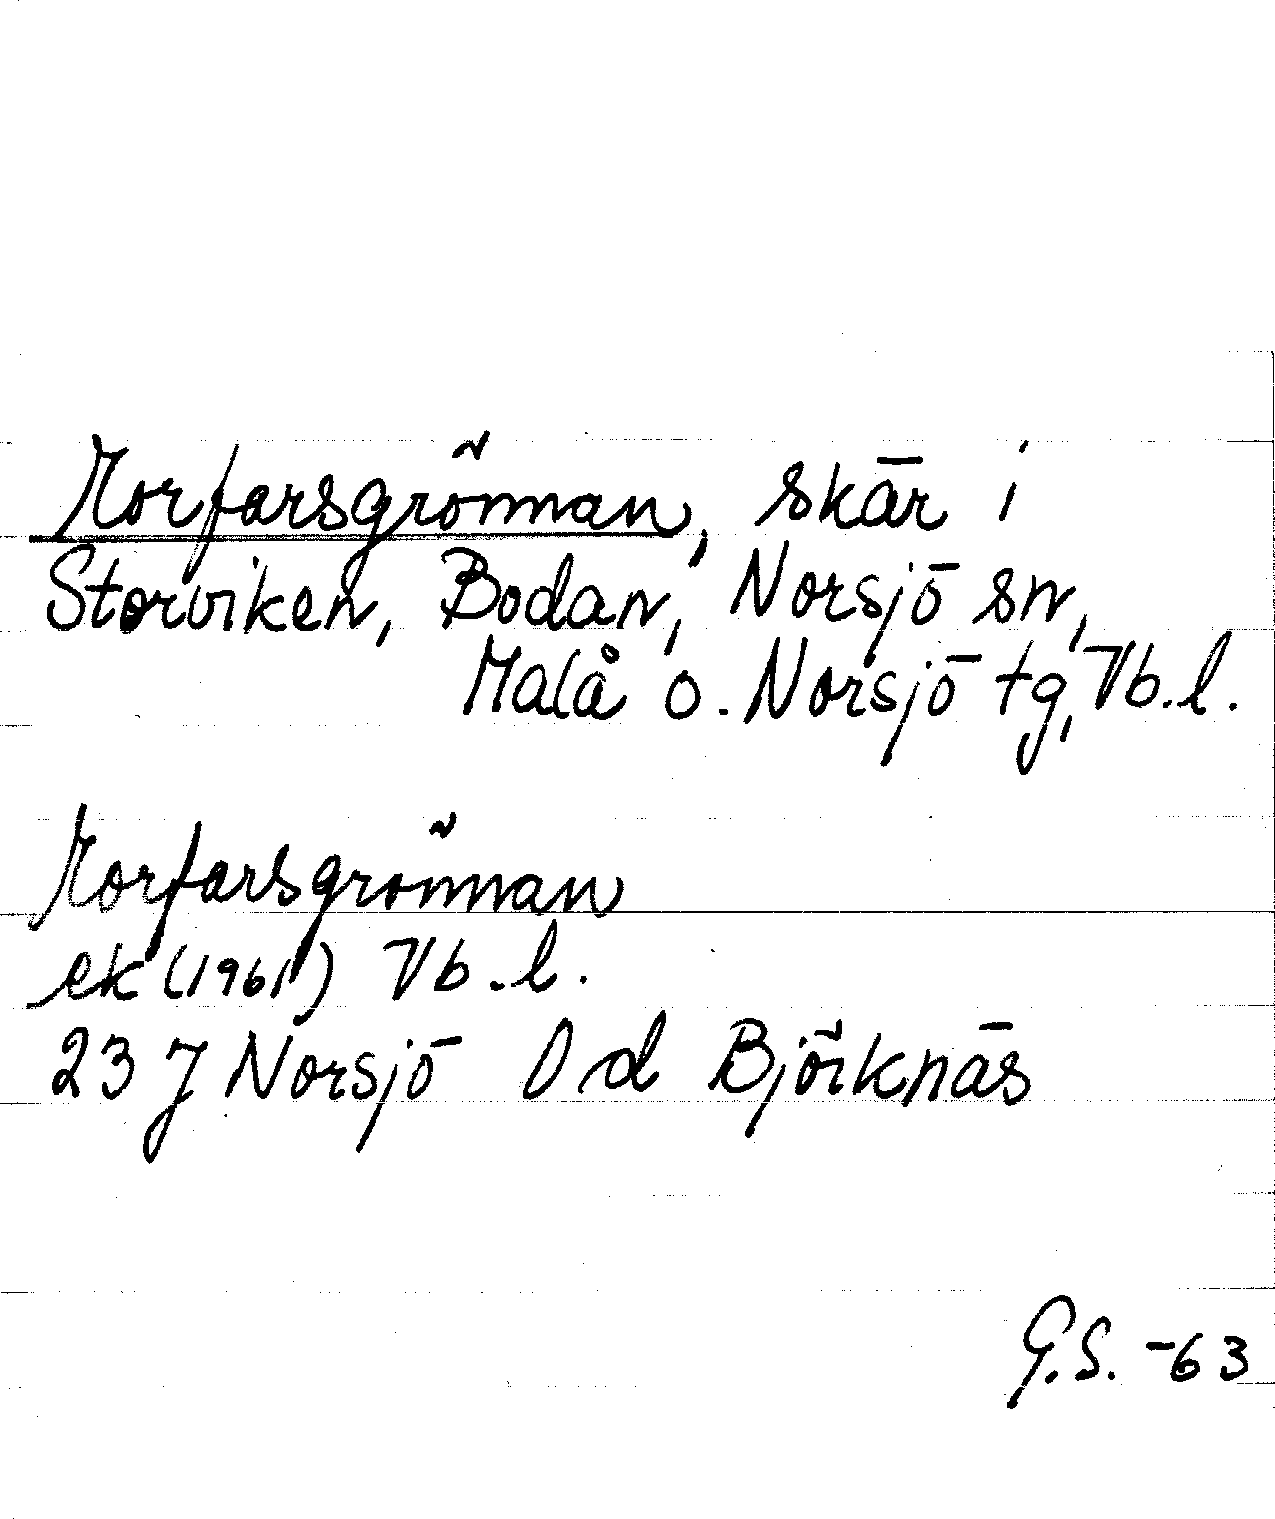 Morfarsgrönnan, skär i
Storviken, Bodan, Norsjö sn,
Malå o. Norsjö tg, Vb.l.
Morfarsgrönnan
ek (1961) Vb.l.
23 J Norsjö 0 d Björknäs
G.S. -63